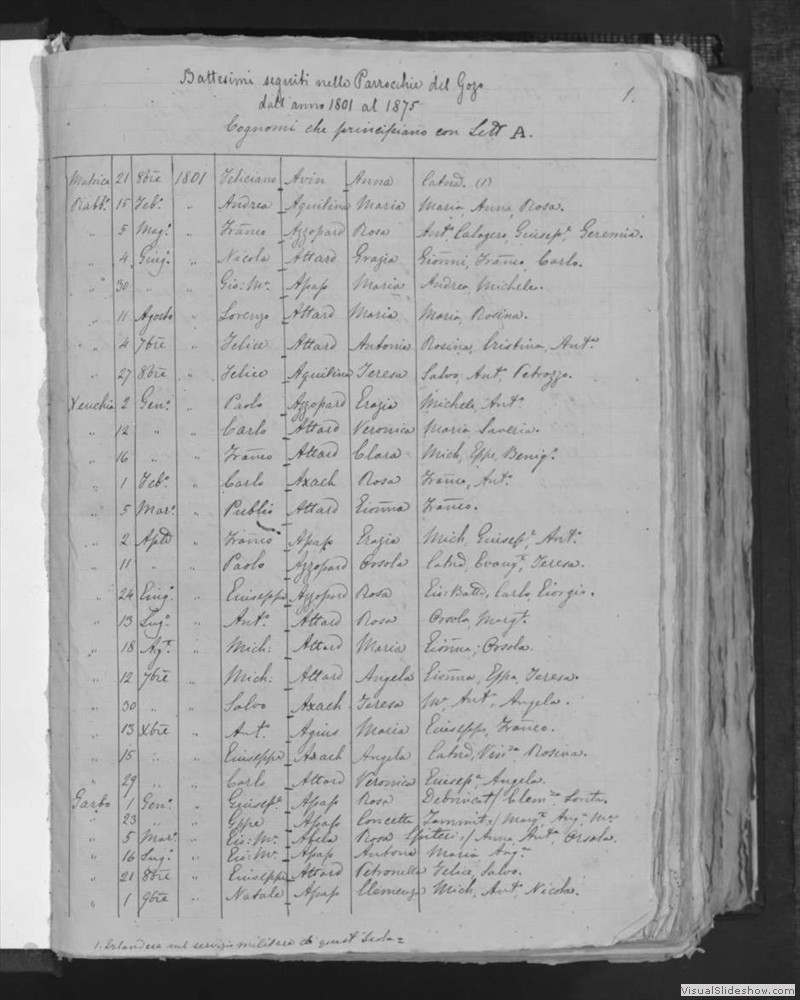 Battesimi seguiti nelle Parrocchie del Gozo
dall'anno 1801 al 1875
1.
Cognomi che principiano con Lett A.
Matrice 21 8bre 1801 Feliciano Avin Anna Catnd. (1)
Rabb.º 15 Feb.º " Andrea Aquilina Maria Maria, Anna, Rosa.
" 5 Mag.º " Franco Azzopard Rosa Ant.º Calogero, Giusep.e Geremia.
" 4 Giug.º " Nicola Attard Grazia Gionni, Franco, Carlo.
" 30 " " Gio: M.a Apap Maria Andrea, Michele.
" 11 Agosto " Lorenzo Attard Maria Maria, Rosina.
" 4 7bre " Felice Attard Antonia Rosina, Cristina, Ant.a
" 27 8bre " Felice Aquilina Teresa Salvo, Ant.º Petrozzo.
Xeuchia 2 Gen.º " Paolo Azzopard Grazia Michele, Ant.º
" 12 " " Carlo Attard Veronica Maria Saveria.
" 16 " " Franco Attard Clara Mich, Eppe, Benig.º
" 1 Feb.º " Carlo Axach Rosa Franco, Ant.º
" 5 Mar.º " Publio Attard Gionna Franco.
" 2 Aple " Franco Apap Grazia Mich, Giusep.e Ant.º
" 11 " " Paolo Azzopard Orsola Catnd, Evang.ta Teresa.
" 24 Giug.º " Giuseppe Azzopard Rosa Gio: Batta, Carlo, Giorgio.
" 13 Lug.º " Ant.º Attard Rosa Orsola, Marg.t
" 18 Ag.º " Mich: Attard Maria Gionna, Orsola.
" 12 7bre " Mich: Attard Angela Gionna, Eppa, Teresa.
" 30 " " Salvo Axach Teresa M.a Ant.a Angela.
" 13 Xbre " Ant.º Agius Maria Giuseppe, Franco.
" 15 " " Giuseppe Axach Angela Catnd, Vin.za Rosina.
" 29 " " Carlo Attard Veronica Giusep.a Angela.
Garbo 1 Gen.º " Giusep.e Apap Rosa Debrincat / Clem.za Santa.
" 23 " " Eppe Apap Concetta Zammit / Marg.ta Ang.a M.a
" 5 Mar.º " Gio: M.a Abela Rosa Spiteri / Anna, Ant.a Orsola.
" 16 Lug.º " Gio: M.a Apap Antona Maria Ang.a
" 21 8bre " Giuseppe Attard Petronella Felice, Salvo.
" 1 9bre " Natale Apap Clemenza Mich, Ant.º Nicola.
1. Irlandese nel servizio militare di quest'Isola =
VisualSlideshow.com